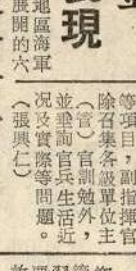 現
地區海軍
展開的六
等項目，副指揮官
除召集各級單位主
（管）官訓勉外，
並垂詢官兵生活近
况及實際等問題。
（張興仁）